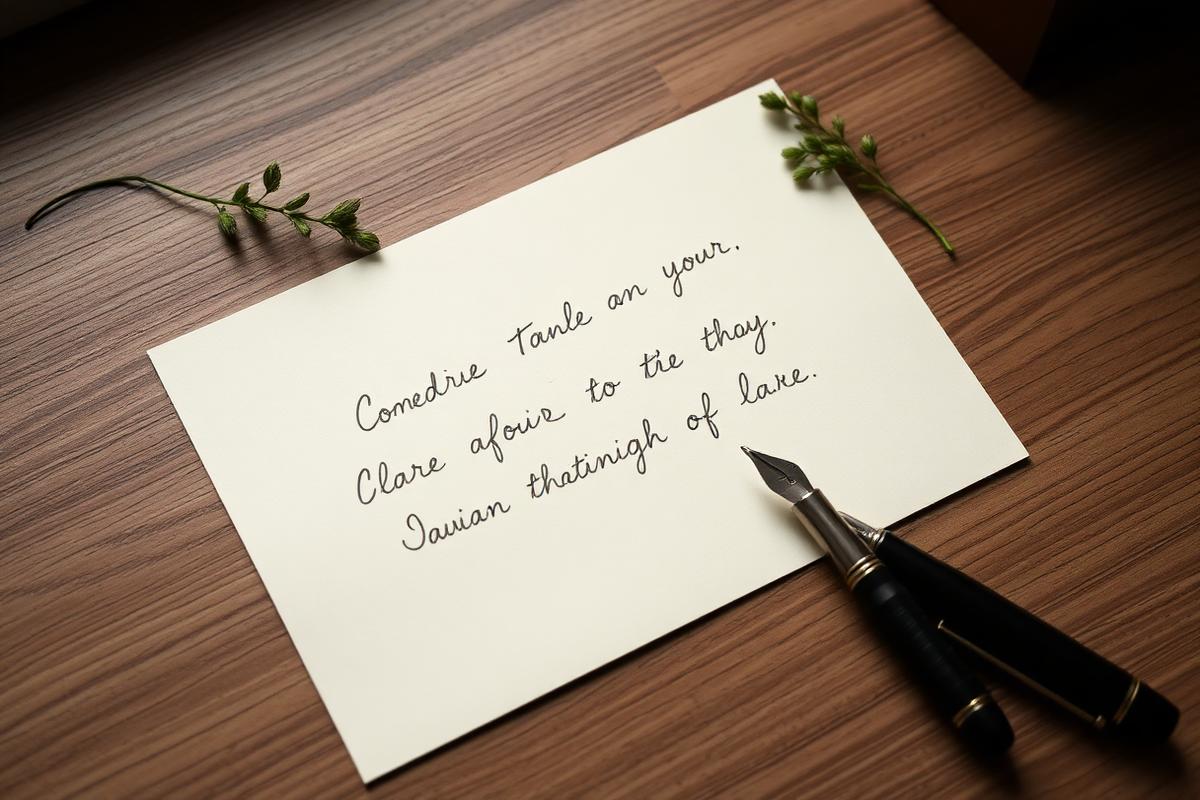 Comedrie Tanle an your.
Clare afouiz to tre thay.
Jauian thatinigh of lare.